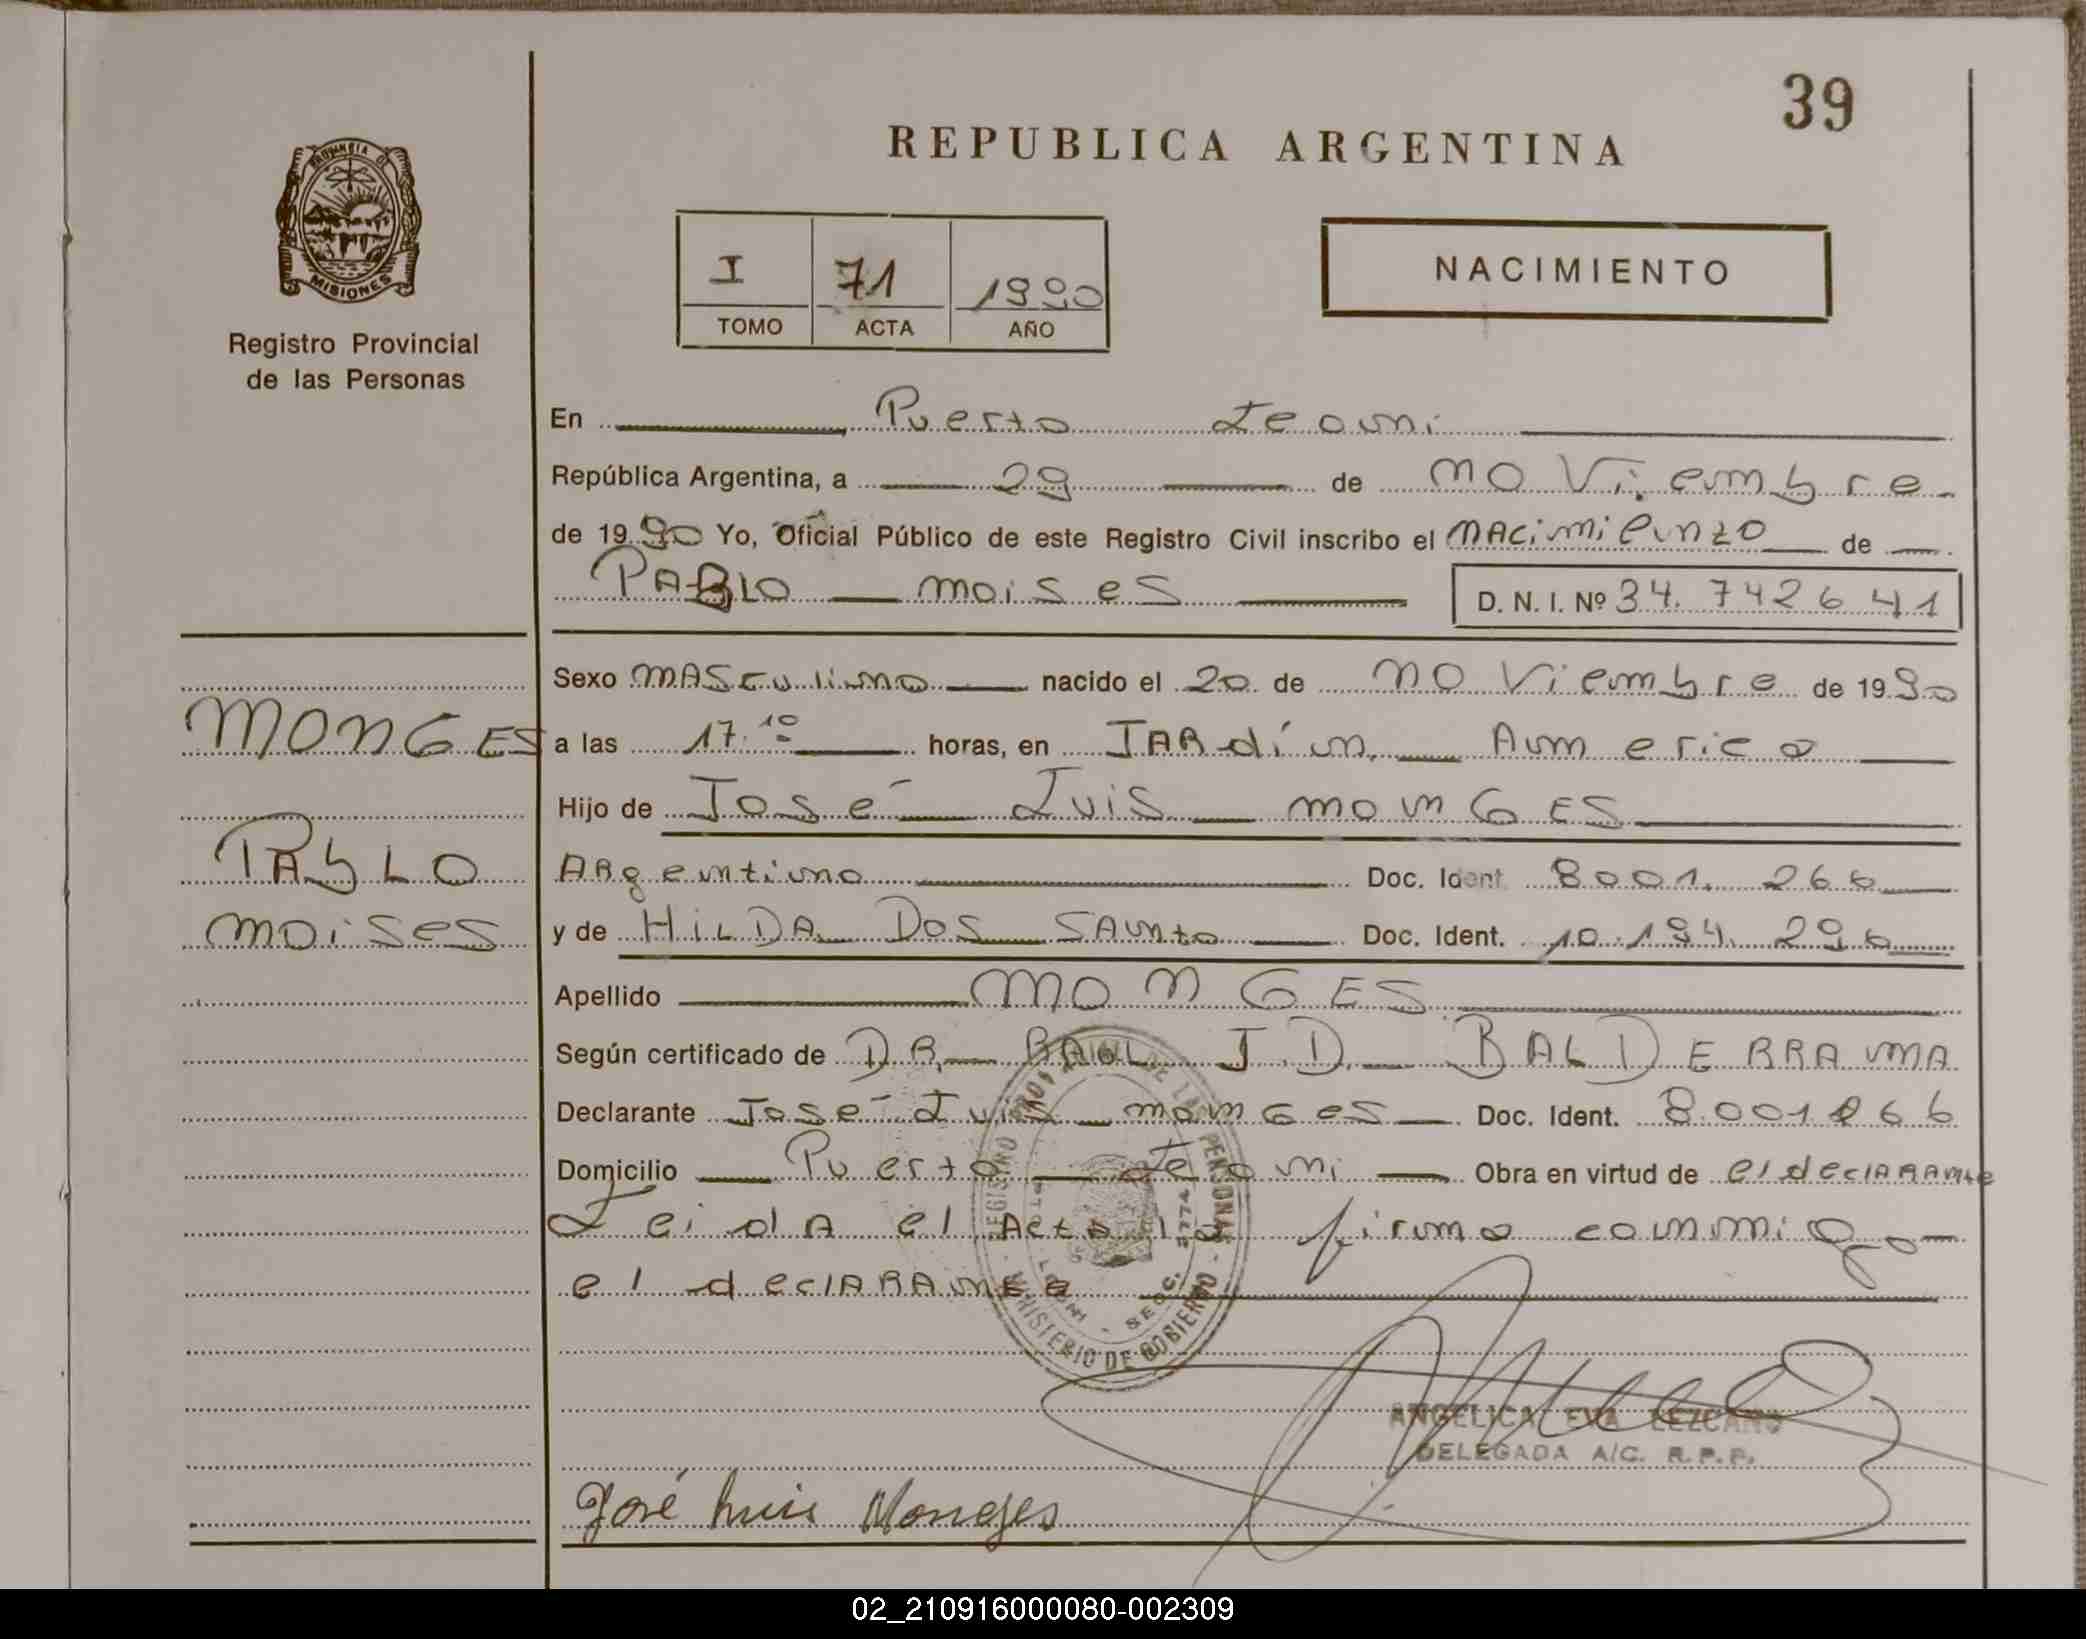 39
REPUBLICA ARGENTINA
PROVINCIA DE
MISIONES
I 71 1990
TOMO ACTA AÑO
NACIMIENTO
Registro Provincial
de las Personas
En Puerto Leoni
República Argentina, a 29 de noviembre
de 1990 Yo, Oficial Público de este Registro Civil inscribo el nacimiento de
PABLO moises D. N. I. Nº 34.742641
Sexo masculino nacido el 20 de noviembre de 1990
MONGES a las 17.10 horas, en Jardín America
Hijo de José Luis monGES
PAbLO Argentino Doc. Ident. 8001.266
moises y de HILDA DOS SAnto Doc. Ident. 10.194.296
Apellido MONGES
Según certificado de DR. RAUL J.D. BALDERRAMA
Declarante José Luis monGes Doc. Ident. 8.001266
Domicilio Puerto Leoni Obra en virtud de el declarante
Leida el Acta la firma conmigo
el declarante
REGISTRO PROVINCIAL DE LAS PERSONAS
MINISTERIO DE GOBIERNO
ANGELICA EVA LEZCANO
DELEGADA A/C. R.P.P.
José Luis Monges
02_210916000080-002309